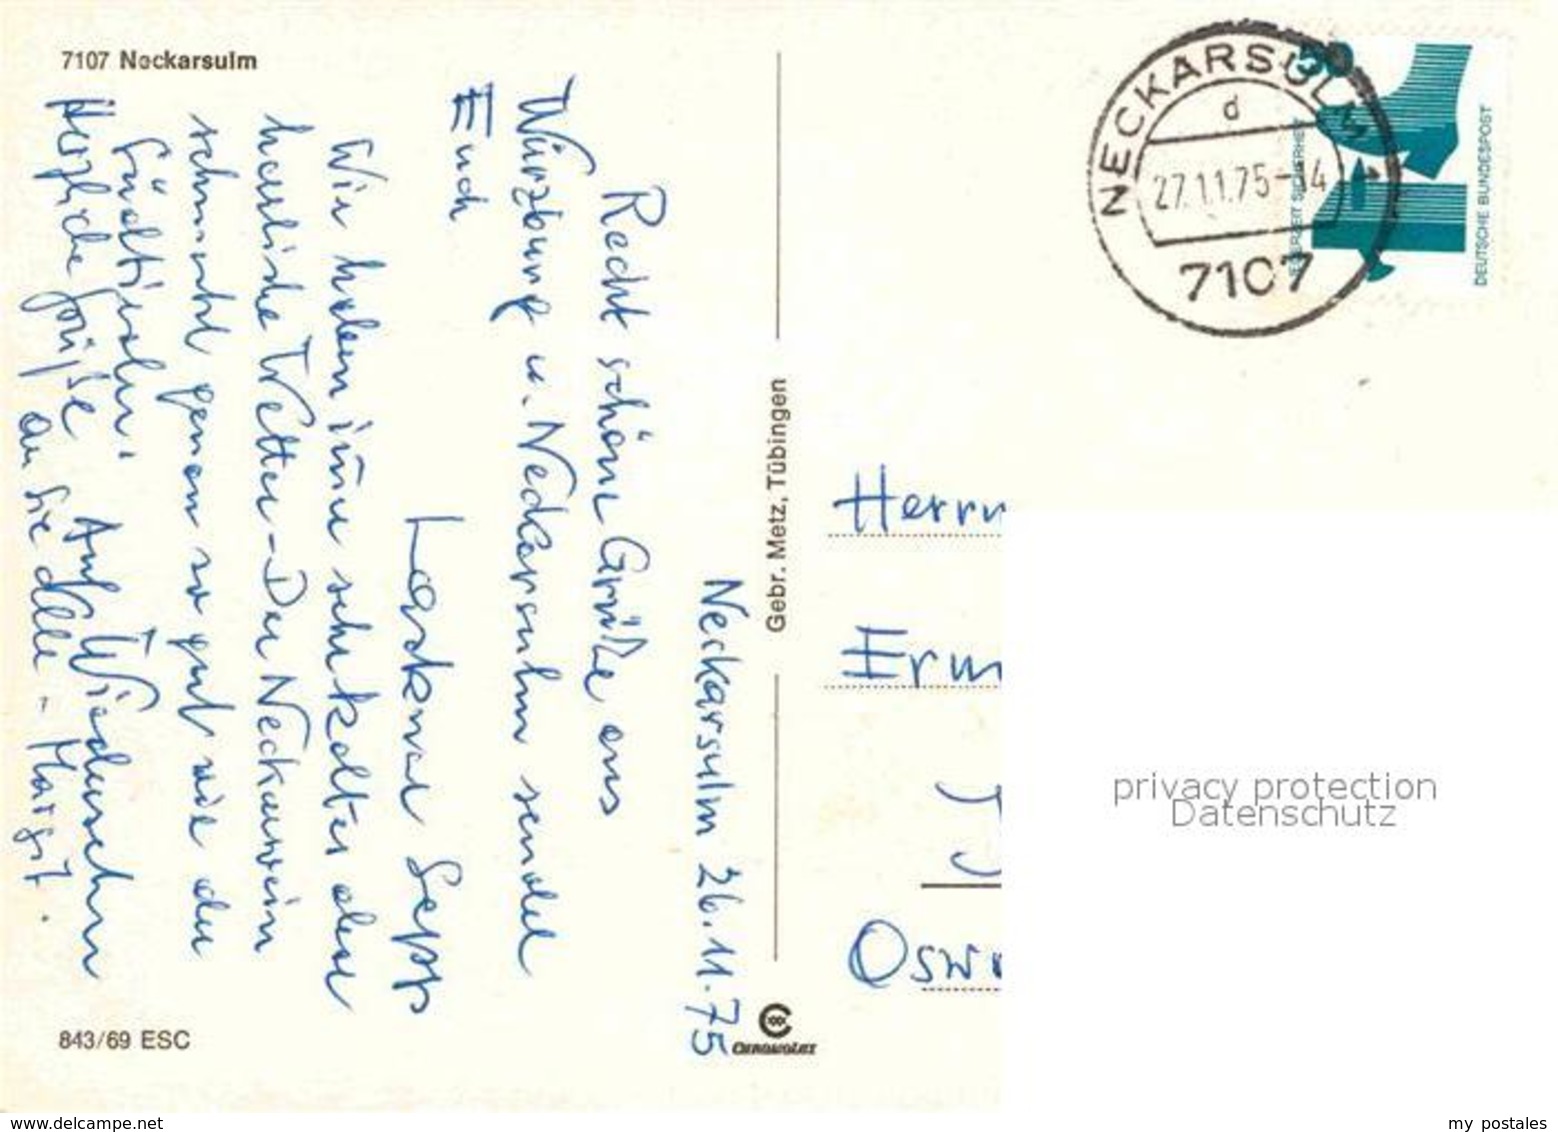 7107 Neckarsulm
Neckarsulm 26.11.75
Recht schöne Grüße aus
Würzburg u. Neckarsulm sendet
Euch
Sepp
Wir haben
herrliche Wetter - Der Neckarwein
schmeckt genau so gut wie der
Südtiroler. Auf Wiedersehn
Herzliche Grüße an Sie Alle - Margit.
843/69 ESC
Gebr. Metz, Tübingen
CHROMOLUX
NECKARSULM 1
d
27.11.75-14
7107
50
JEDERZEIT SICHERHEIT
DEUTSCHE BUNDESPOST
Herrn
privacy protection
Datenschutz
www.delcampe.net
my postales